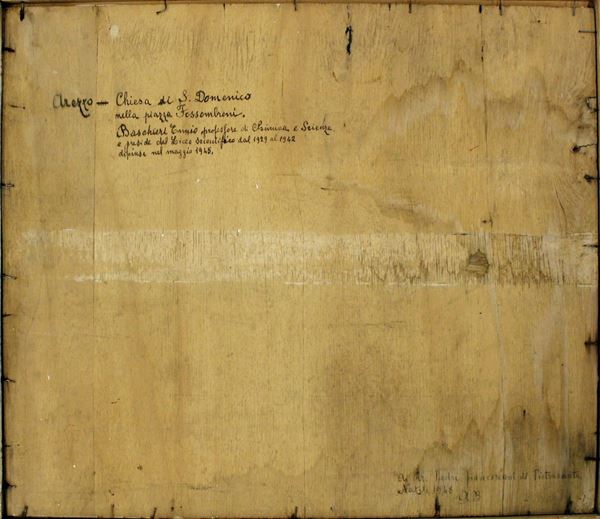 Arezzo — Chiesa di S. Domenico
nella piazza Fossombroni.
Baschieri Ennio professore di Chimica e Scienze
e preside del Liceo Scientifico dal 1929 al 1942
dipinse nel maggio 1945.
Padri francescani di Pietrasanta
Natale 1948